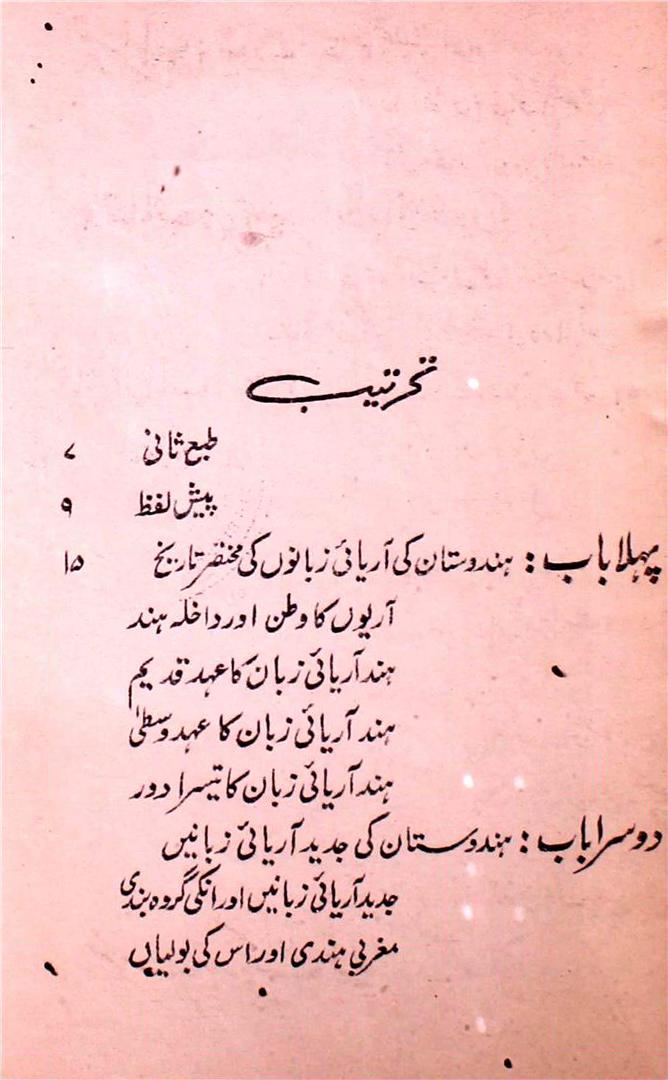 ترتیب
طبع ثانی ۷
پیش لفظ ۹
پہلا باب : ہندوستان کی آریائی زبانوں کی مختصر تاریخ ۱۵
آریوں کا وطن اور داخلہ ہند
ہند آریائی زبان کا عہد قدیم
ہند آریائی زبان کا عہد وسطیٰ
ہند آریائی زبان کا تیسرا دور
دوسرا باب : ہندوستان کی جدید آریائی زبانیں
جدید آریائی زبانیں اور انکی گروہ بندی
مغربی ہندی اور اس کی بولیاں